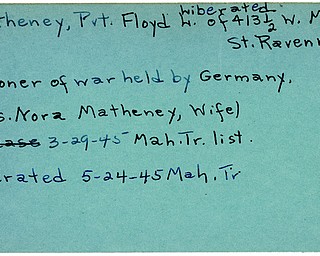 liberated
theney, Pvt. Floyd W. of 413½ W. M
St. Ravenn
oner of war held by Germany.
s. Nora Matheney, Wife)
ease 3-29-45 Mah. Tr. list.
erated 5-24-45 Mah. Tr